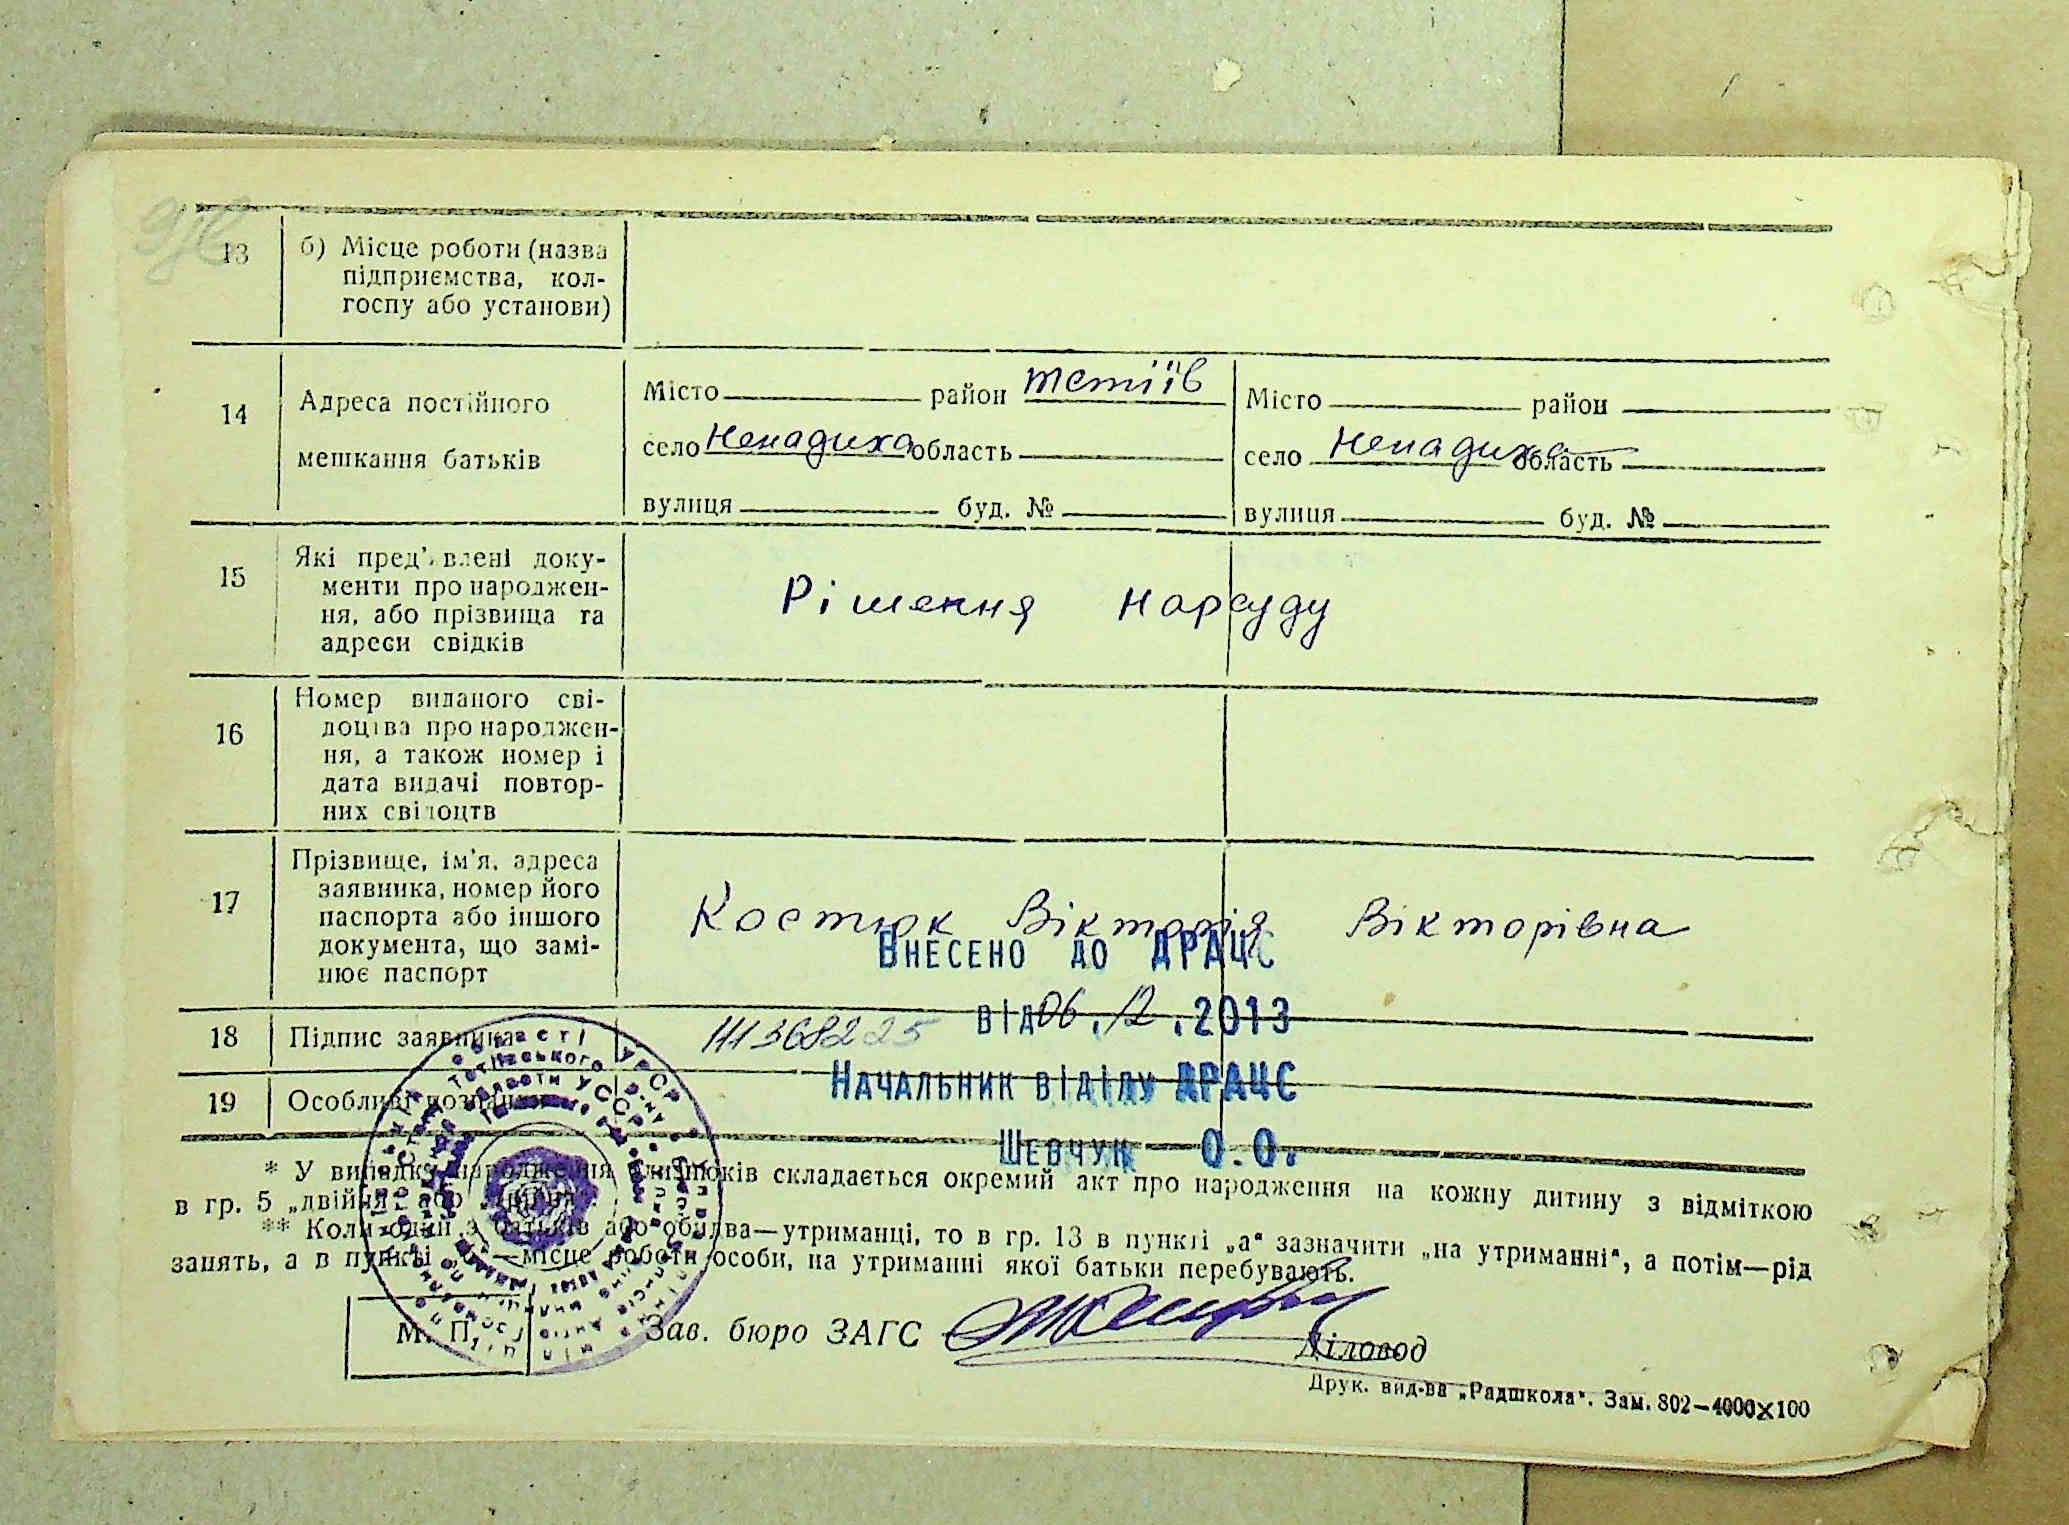 13
б) Місце роботи (назва
підприємства, кол-
госпу або установи)
14
Адреса постійного
мешкання батьків
Місто район тетіїв
село Ненадиха область
вулиця буд. №
Місто район
село Ненадиха область
вулиця буд. №
15
Які пред'явлені доку-
менти про народжен-
ня, або прізвища та
адреси свідків
Рішення нарсуду
16
Номер виданого сві-
доцтва про народжен-
ня, а також номер і
дата видачі повтор-
них свідоцтв
17
Прізвище, ім'я, адреса
заявника, номер його
паспорта або іншого
документа, що замі-
нює паспорт
Костюк Вікторія Вікторівна
Внесено до ДРАЦС
18
Підпис заявника
111368225
від 06.12.2013
19
Особливі познач
Начальник відділу ДРАЦС
Шевчук О.О.
* У випадку народження близнюків складається окремий акт про народження на кожну дитину з відміткою
в гр. 5 „двійня" або „трійня".
** Коли один з батьків або обидва—утриманці, то в гр. 13 в пункті „а" зазначити „на утриманні", а потім—рід
занять, а в пункті —місце роботи особи, на утриманні якої батьки перебувають.
М. П.
Зав. бюро ЗАГС
Діловод
Друк. вид-ва „Радшкола". Зам. 802—4000×100